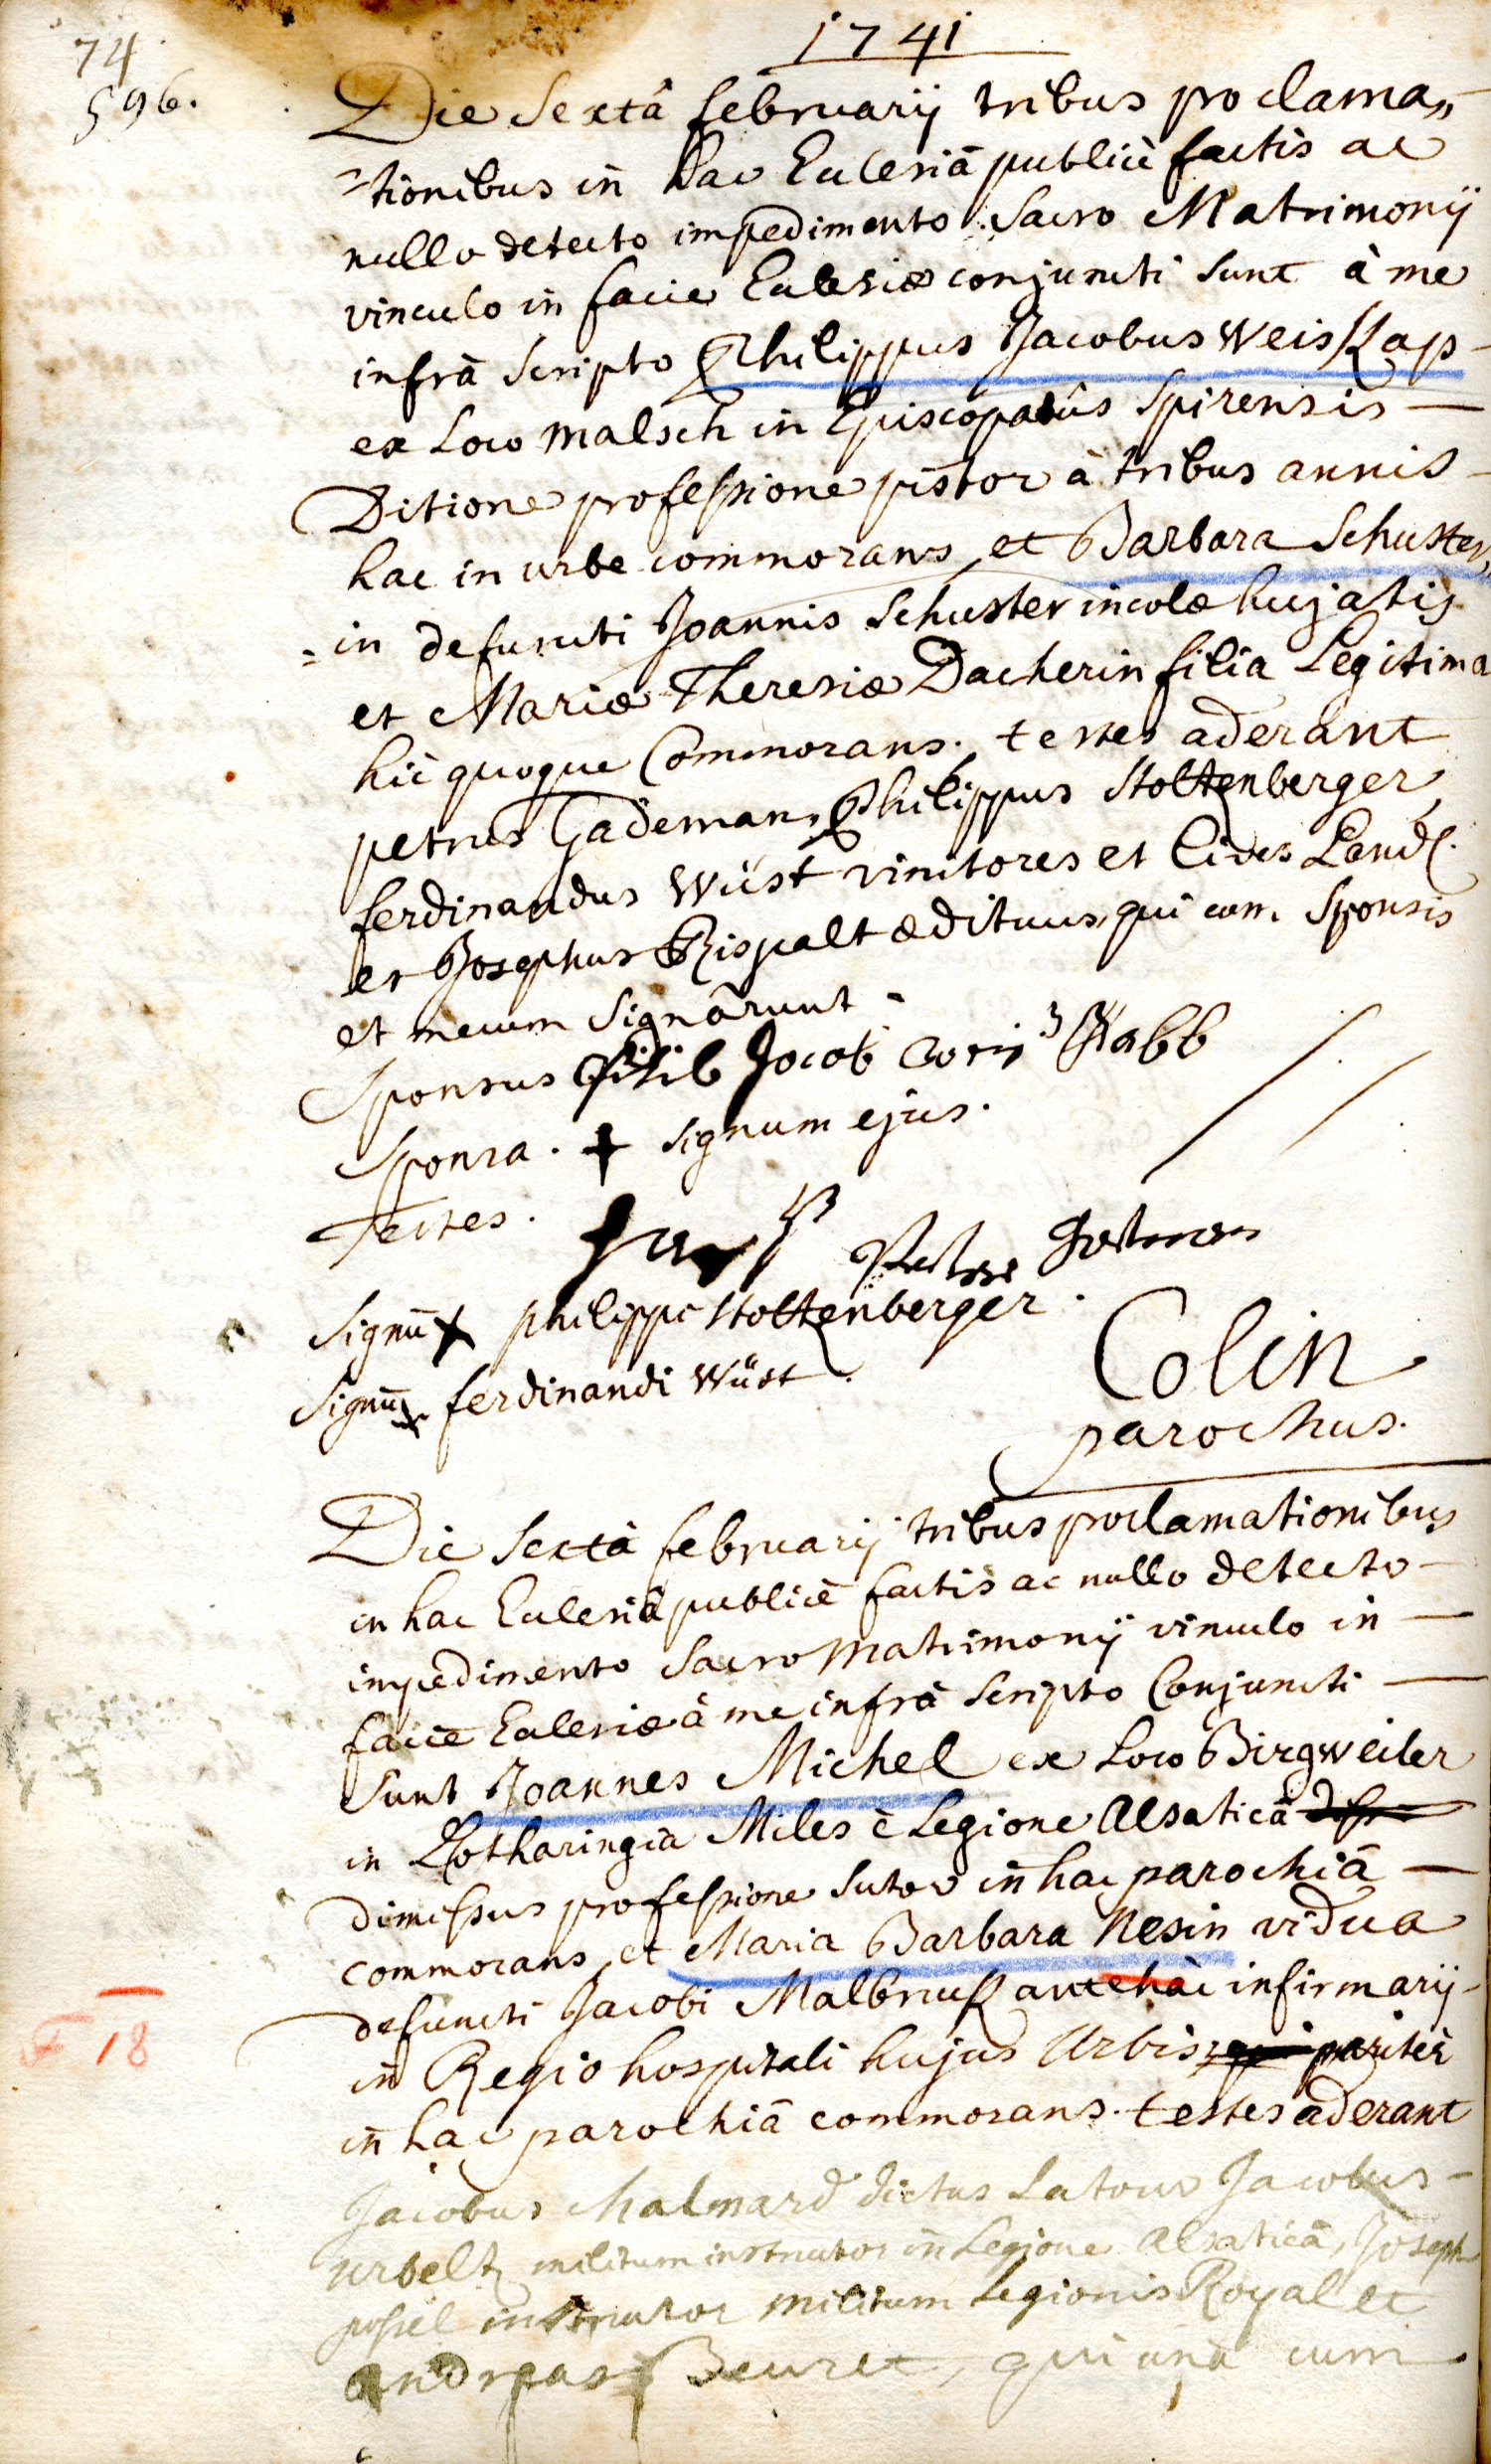 74
596.
1741
Die Sextâ februarij tribus proclama„
=tionibus in hac Ecclesiâ publicè factis ac
nullo detecto impedimento Sacro Matrimonij
vinculo in facie Ecclesiæ conjuncti sunt à me
infrà scripto Philippus Jacobus Weis Kap -
ex Loco Malsch in Episcopatûs Spirensis —
Ditione professione pistor à tribus annis -
hac in urbe commorans, et Barbara Schuster„
=in defuncti Joannis Schuster incolæ hujatis
et Mariæ Theresiæ Dacherin filia Legitima
hic quoque Commorans. testes aderant
petrus Gademan, Philippus Stoltzenberger,
ferdinandus Wüst vinitores et Cives Land.
et Josephus Rispalt ædituus, qui cum Sponsis
et mecum Signârunt -
Sponsus Filib Jacob Kabb
Sponsa. + signum ejus.
Testes.
Signū x philippi Stoltzenberger.
Signū x ferdinandi Wüst.
Colin
parochus.
Die Sextà februarij tribus proclamationibus
in hac Ecclesiâ publicè factis ac nullo detecto -
impedimento Sacro Matrimonij vinculo in —
facie Ecclesiæ à me infrà Scripto Conjuncti —
Sunt Joannes Michel ex Loco Birgweiler
in Lotharingia Miles è Legione Alsaticâ
dimissus professione Sutor in hac parochiâ —
commorans, et Maria Barbara Nesin vidua
defuncti Jacobi Malbruk antehàc infirmarij -
F 18
in Regio hospitali hujus Urbis pariter
in hac parochiâ commorans. testes aderant
Jacobus Malmard dictus Latour Jacobus -
urbelt militum instructor in Legione Alsaticâ, Joseph
possel instructor militum Legionis Royal et
andreas Beuret, qui unà cum